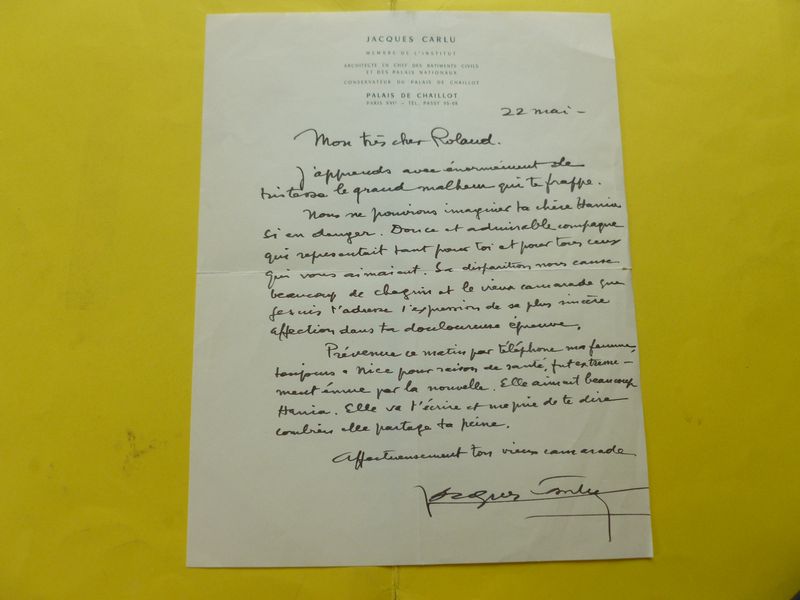 JACQUES CARLU
MEMBRE DE L'INSTITUT
ARCHITECTE EN CHEF DES BATIMENTS CIVILS
ET DES PALAIS NATIONAUX
CONSERVATEUR DU PALAIS DE CHAILLOT
PALAIS DE CHAILLOT
PARIS XVIe - TEL. PASSY 95-08
22 mai -
Mon très cher Roland.
J'apprends avec énormément de
tristesse le grand malheur qui te frappe.
Nous ne pouvions imaginer ta chère Hania
si en danger. Douce et admirable compagne
qui représentait tant pour toi et pour tous ceux
qui vous aimaient. Sa disparition nous cause
beaucoup de chagrin et le vieux camarade que
je suis t'adresse l'expression de sa plus sincère
affection dans ta douloureuse épreuve.
Prévenue ce matin par téléphone ma femme,
toujours à Nice pour raison de santé, fut extrême-
ment émue par la nouvelle. Elle aimait beaucoup
Hania. Elle va t'écrire et me prie de te dire
combien elle partage ta peine.
Affectueusement ton vieux camarade
Jacques Carlu